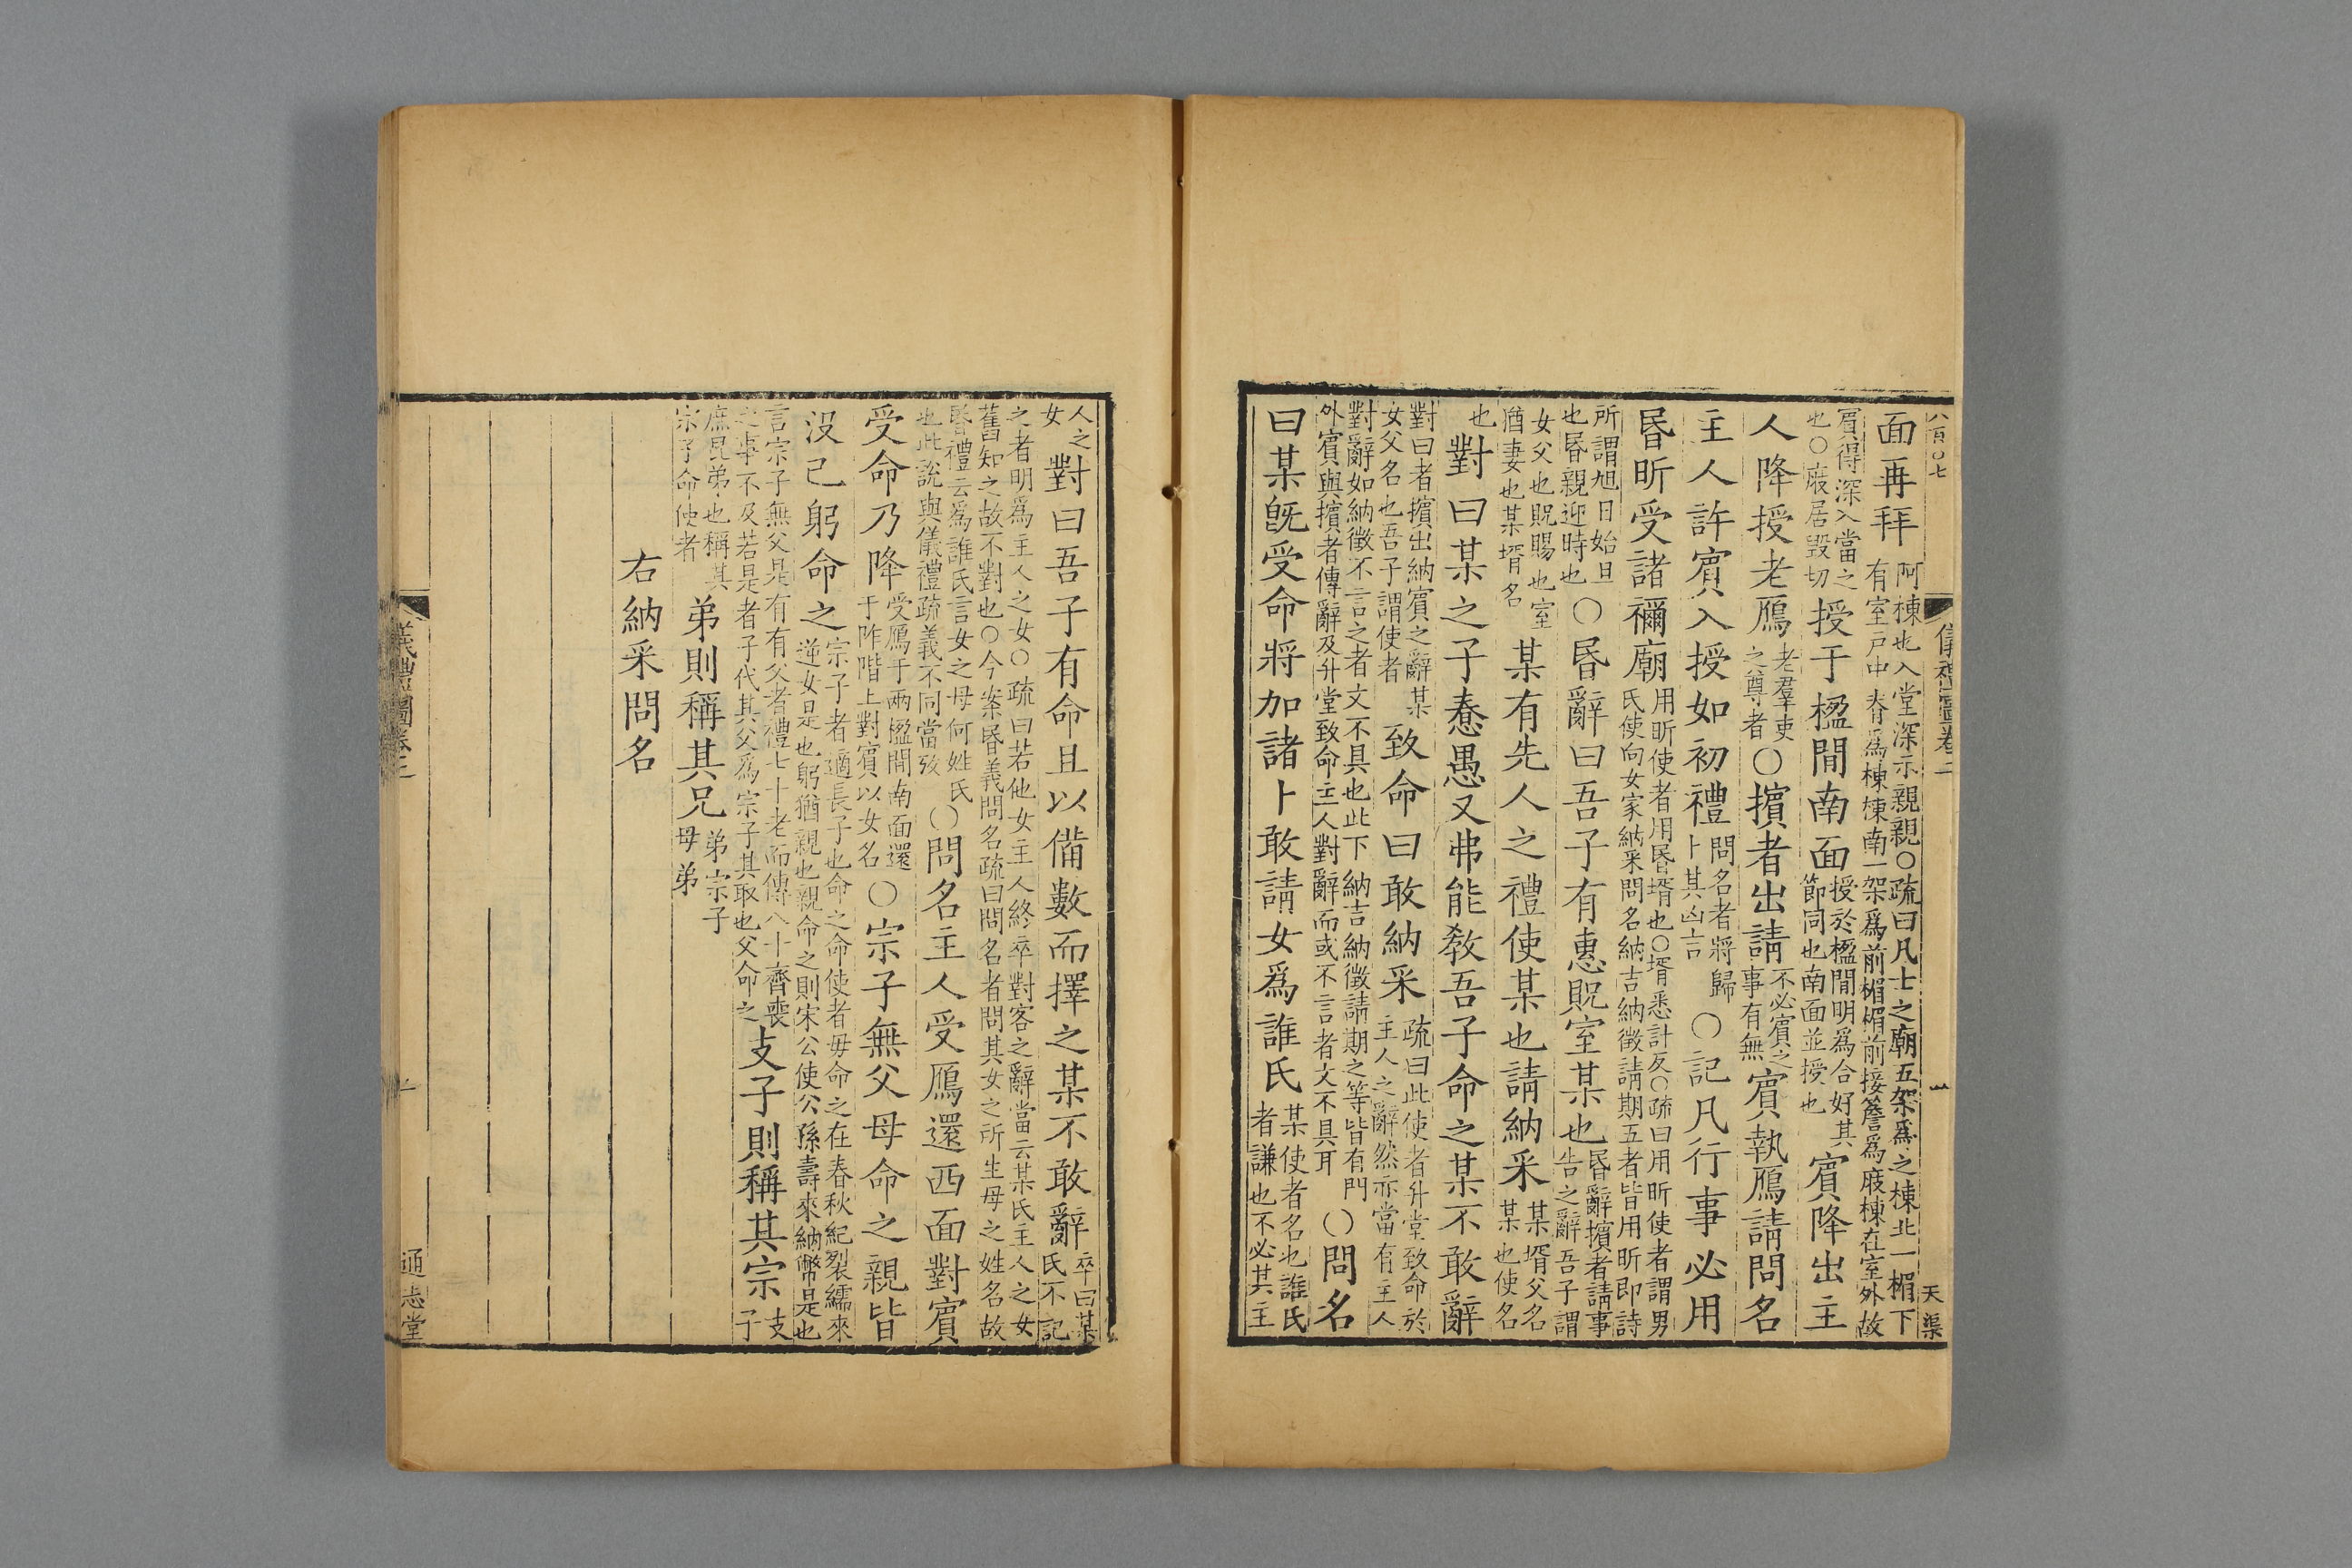 八百〇七 儀禮圖卷二 天渠
面再拜阿棟也入堂深示親親○疏曰凡士之廟五架爲之棟北一楣下有室戸中脊爲棟棟南一架爲前楣楣前接簷爲庪棟在室外故
賓得深入當之也○庪居毀切授于楹間南面授於楹間明爲合好其節同也南面並授也賓降出主
人降授老鴈老羣吏之尊者○擯者出請不必賓之事有無賓執鴈請問名
主人許賓入授如初禮問名者將歸卜其凶吉○記凡行事必用
昏昕受諸禰廟用昕使者用昏壻也○壻悉計反○疏曰用昕使者謂男氏使向女家納采問名納吉納徵請期五者皆用昕即詩
所謂旭日始旦也昏親迎時也○昏辭曰吾子有惠貺室某也昏辭擯者請事告之辭吾子謂
女父也貺賜也室猶妻也某壻名某有先人之禮使某也請納采某壻父名某也使名
也對曰某之子惷愚又弗能敎吾子命之某不敢辭
對曰者擯出納賓之辭某女父名也吾子謂使者致命曰敢納采疏曰此使者升堂致命於主人之辭然亦當有主人
對辭如納徵不言之者文不具也此下納吉納徵請期之等皆有門外賓與擯者傳辭及升堂致命主人對辭而或不言者文不具耳○問名
曰某旣受命將加諸卜敢請女爲誰氏某使者名也誰氏者謙也不必其主
人之女對曰吾子有命且以備數而擇之某不敢辭卒曰某氏不記
之者明爲主人之女○疏曰若他女主人終卒對客之辭當云某氏主人之女舊知之故不對也○今案昏義問名疏曰問名者問其女之所生母之姓名故
昏禮云爲誰氏言女之母何姓氏也此說與儀禮疏義不同當攷○問名主人受鴈還西面對賓
受命乃降受鴈于兩楹間南面還于阼階上對賓以女名○宗子無父母命之親皆
沒己躬命之宗子者適長子也命之命使者母命之在春秋紀裂繻來逆女是也躬猶親也親命之則宋公使公孫壽來納幣是也
言宗子無父是有有父者禮七十老而傳八十齊喪之事不及若是者子代其父爲宗子其取也父命之支子則稱其宗支子
庶昆弟也稱其宗子命使者弟則稱其兄弟宗子母弟
右納采問名
儀禮圖卷二 十 通志堂